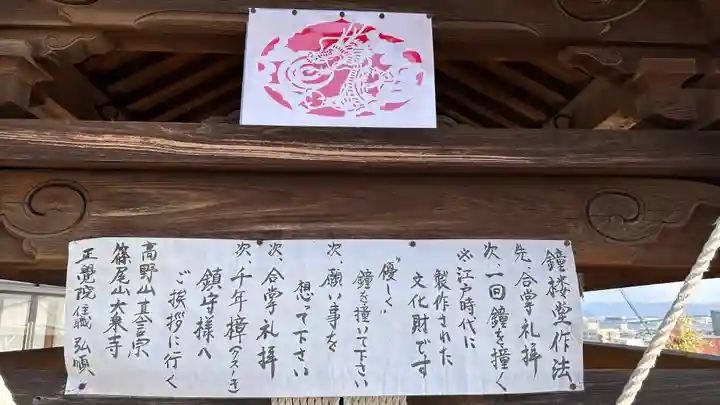 鐘楼堂作法
先、合掌礼拝
次、一回鐘を撞く
※江戸時代に
製作された
文化財です
"優しく"
鐘を撞いて下さい
次、願い事を
想って下さい
次、合掌礼拝
次、千年樟(クスノキ)
鎮守様へ
ご挨拶に行く
高野山真言宗
篠尾山大泉寺
正覺院 住職 弘順